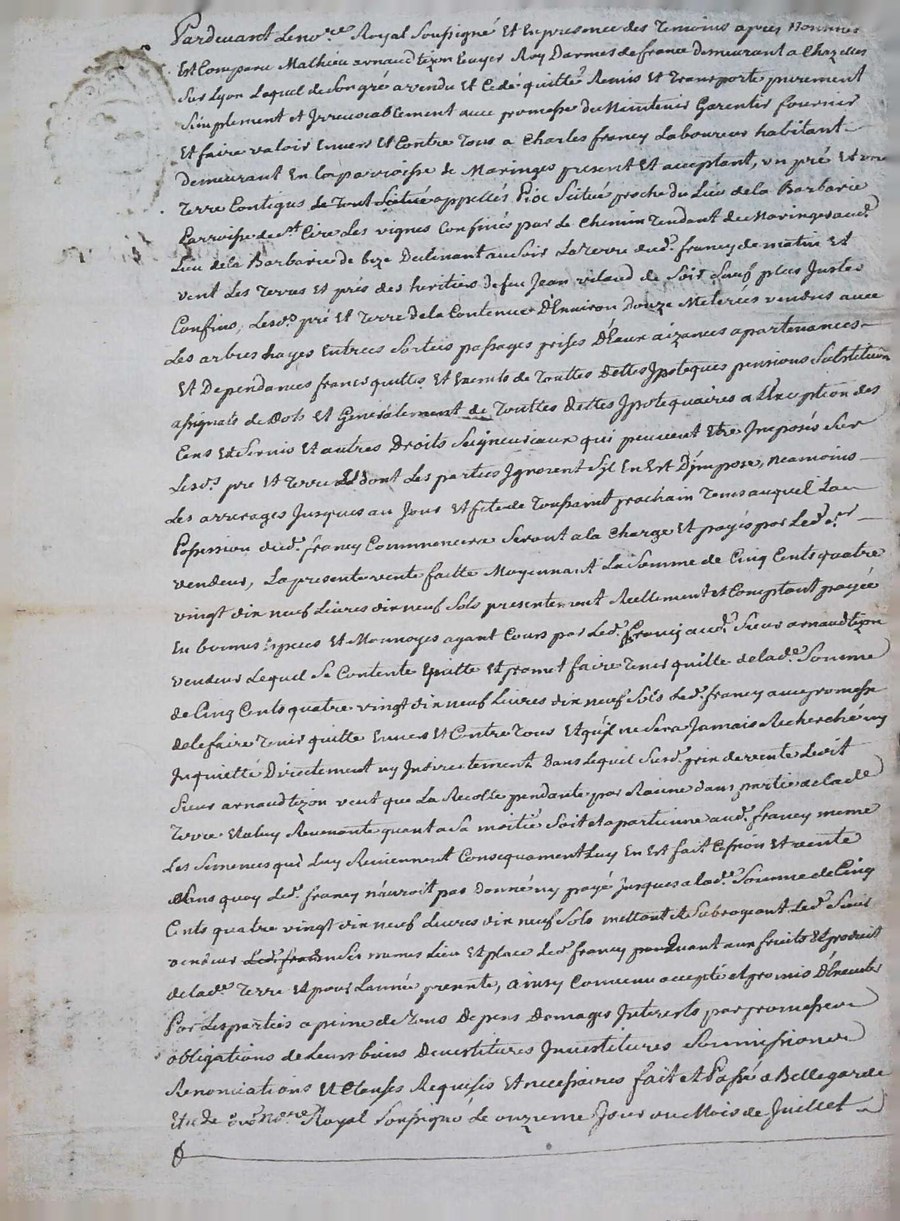 Pardevant Le no.re Royal Soussigné Et En presence des Temoins après Nommés
Est Comparu Mathieu arnaud tizon Ecuyer Roy Darmes de france demeurant a Chazelles
Sur Lyon Lequel de Son gré a vendu Et Cedé quitté Remis Et Transporte purement
Simplement et Irrevocablement avec promesse de Maintenir Garentir fournir
Et faire valoir Envers Et Contre Tous a Charles francy Laboureur habitant
demeurant En la parroisse de Maringes present Et acceptant, un pré Et une
Terre Contigus Le Tout Scitué appellés Pioc Scitué proche du Lieu de la Barbarie
Parroisse de St Cire Les vignes Confinés par Le Chemin Tendant de Maringes aud.
Lieu de la Barbarie de bize Declinant au Soir La Terre dud. francy de matin Et
vent Les Terres Et prés des heritiers de feu Jean vilaud de Soir Sauf plus Justes
Confins, Lesd.s pré Et Terre de la Contenue D'Environ Douze Meterées vendus avec
Les arbres hayes Entrées Sorties passages prises D'Eaux aizances apartenances
Et Dependances francs quittes Et Exemts de Touttes Dettes Ipoteques pensions Substitution
assignats de Dots Et Generalement de Touttes Dettes Ipotequaires a L'Exception des
Cens Et Servis Et autres Droits Seigneuriaux qui peuvent Etre Imposés Sur
Lesd.s pré Et Terre Et dont Les parties Ignorent S'il En Est D'Imposé, neamoins
Les arrerages Jusques au Jour Et fete de Toussaint prochain Tems auquel La
Possession dud. francy Commencera Seront a la Charge Et payés par Led. Sr
vendeur, La presente vente faitte Moyennant La Somme de Cinq Cents quatre
vingt dix neuf Livres dix neuf Sols presentement Reellement et Comptant payée
En bonnes Especes Et Monnoyes ayant Cours par Led. francy aud. Sieur arnaud tizon
vendeur Lequel Se Contente Equitte Et promet faire Tenir quitte de lad.e Somme
de Cinq Cents quatre vingt dix neuf Livres dix neuf Sols Led. francy avec promesse
de le faire Tenir quitte Envers Et Contre Tous Et qu'il ne Sera Jamais Recherché ny
Inquietté Directement ny Indirectement Dans Lequel Susd. prix de vente Ledit
Sieur arnaud tizon veut que La Recolte pendante par Racine dans partie de lad.e
Terre Et a luy Revenante quant a Sa moitié Soit Et apartienne aud. francy meme
Les Semences qui Luy Reviennent Consequament Luy En Est fait Cession Et vente
Sans quoy Led. francy n'auroit pas Donné ny payé jusques a lad. Somme de Cinq
Cents quatre vingt dix neuf Livres dix neuf Sols mettant Et Subrogeant Led. Sieur
vendeur Led. francy En Ses memes Lieu Et place Led. francy quant aux fruits Et produit
de lad.e Terre Et pour L'année presente, ainsy Convenu accepté et promis D'Executer
Par Les parties a peine de Tous Depens Domages Interets par promesse
obligations de Leurs biens Devestitures Investitures Soumissions
Renonciations Et Clauses Requises Et necessaires fait Et Passé a Bellegarde
Etude dud. No.re Royal Soussigné Le onzieme Jour du Mois de Juillet